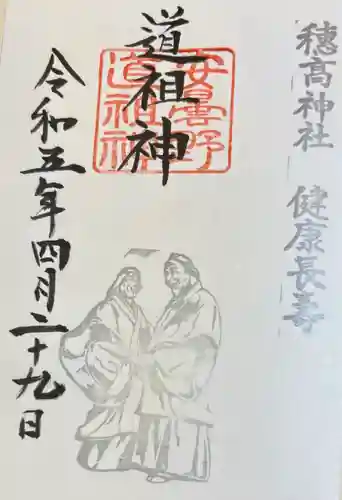 穂高神社 健康長寿
道祖神
安曇野
道祖神
令和五年四月二十九日